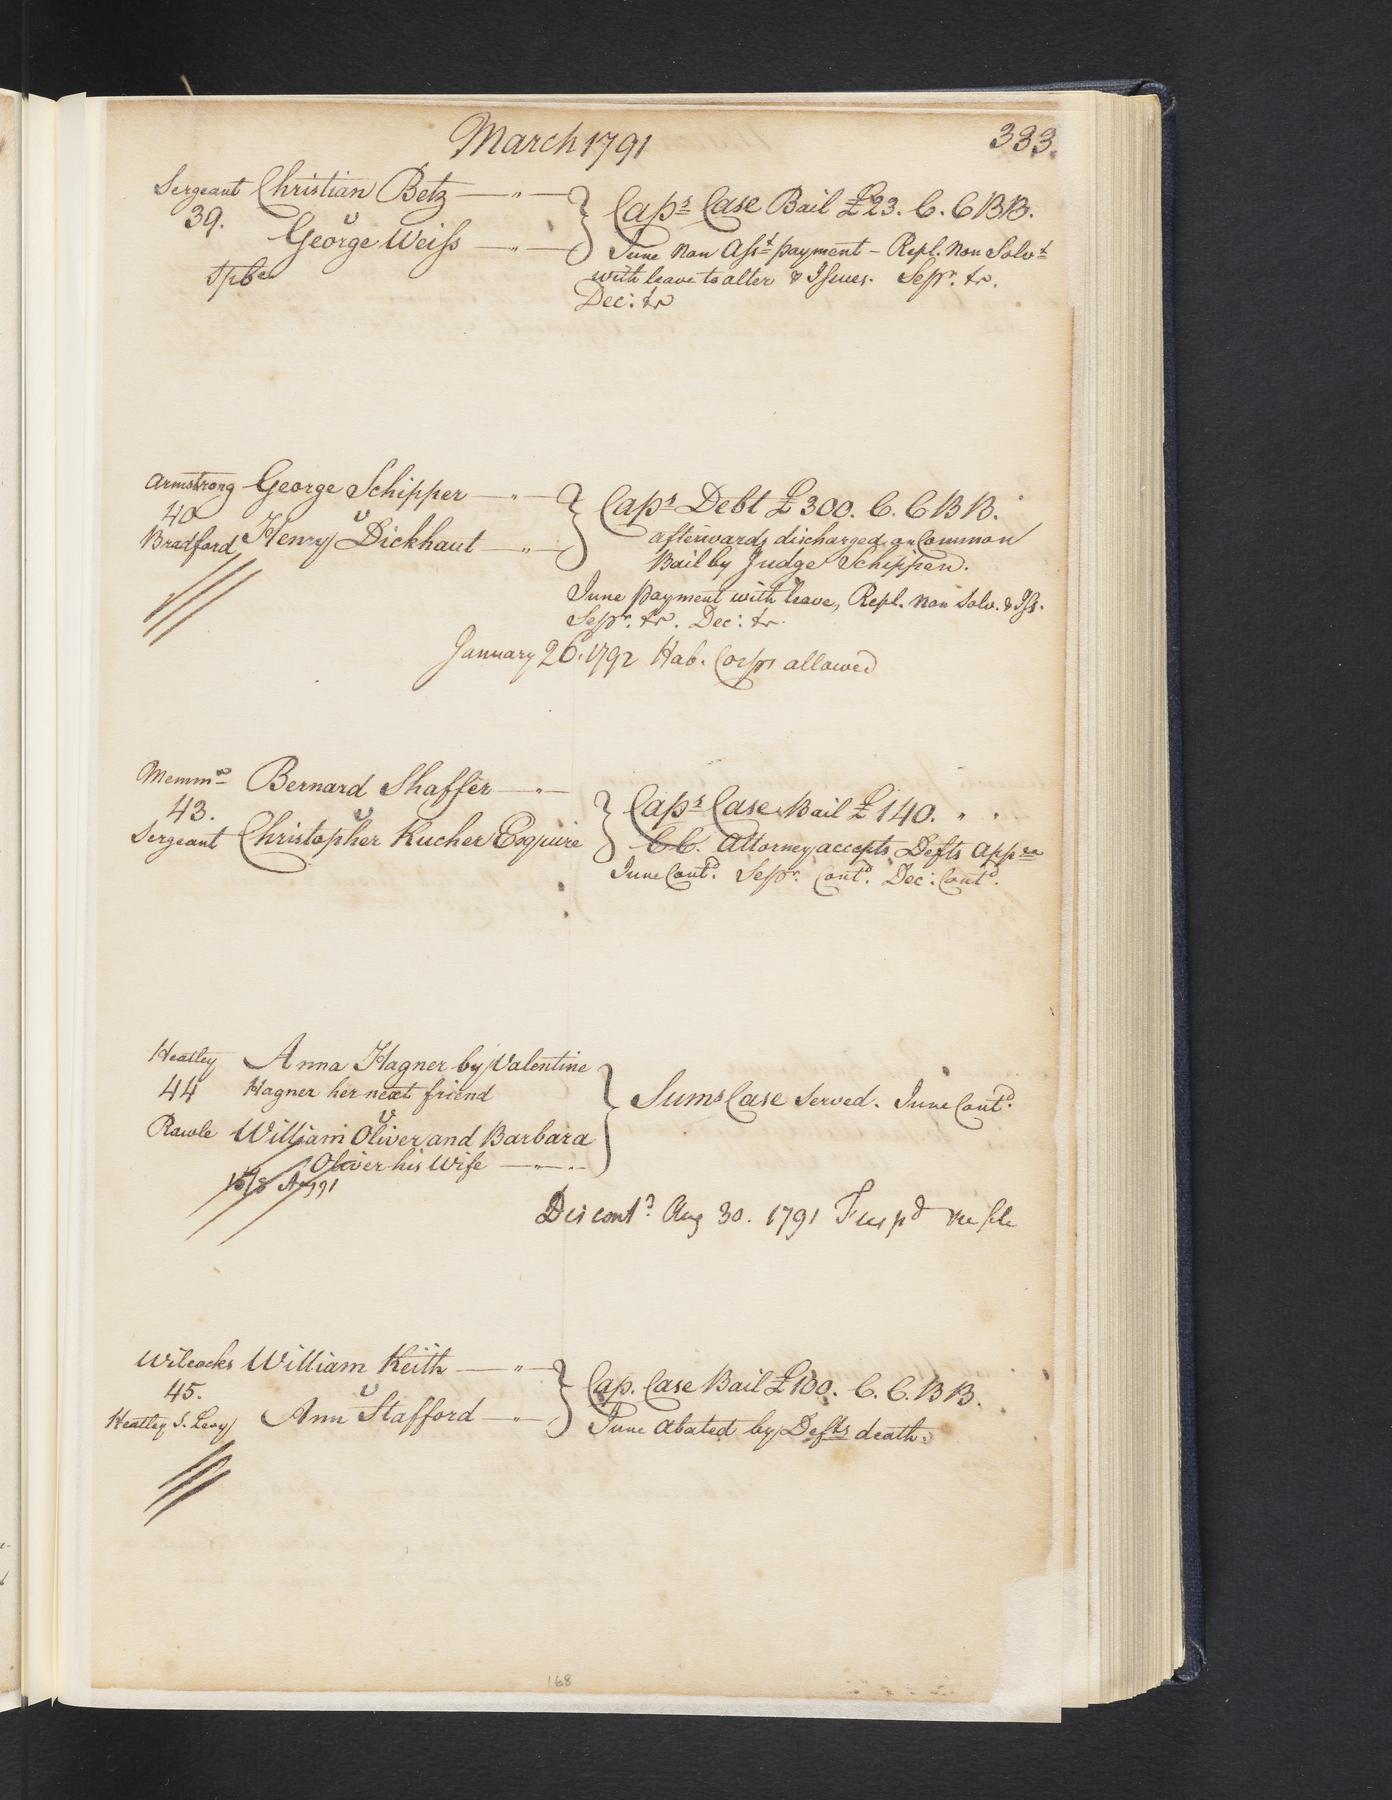 March 1791
333.
Sergeant Christian Betz — " —
39. v
George Weiss — " —
Caps Case Bail £23. C. C BB.
June Non Asst payment – Repl. Non Solvt
with leave to alter & Issues. Sepr. &c.
Dec: &c
Armstrong George Schipper — " —
40 v
Bradford Henry Dickhaut — " —
Caps Debt £300. C. C BB.
afterwards discharged on Common
Bail by Judge Schippen.
June payment with leave, Repl. Non Solv. & Iss.
Sepr. &c. Dec: &c.
January 26. 1792 Hab. Corps allowed
Memmo Bernard Shaffer — " —
43. v
Sergeant Christopher Kucher Esquire
Caps Case Bail £140. " "
CC. Attorney accepts Defts Appce
June Contd. Sepr. Contd. Dec: Contd.
Heatley Anna Hagner by Valentine
44 Hagner her next friend
v
Rawle William Oliver and Barbara
Oliver his Wife — " —
Sums Case Served. June Contd.
Discontd Aug 30. 1791
Wilcocks William Keith — " —
45. v
Heatley S. Levy Ann Stafford — " —
Cap. Case Bail £100. C. C. BB.
June abated by Defts death.
168